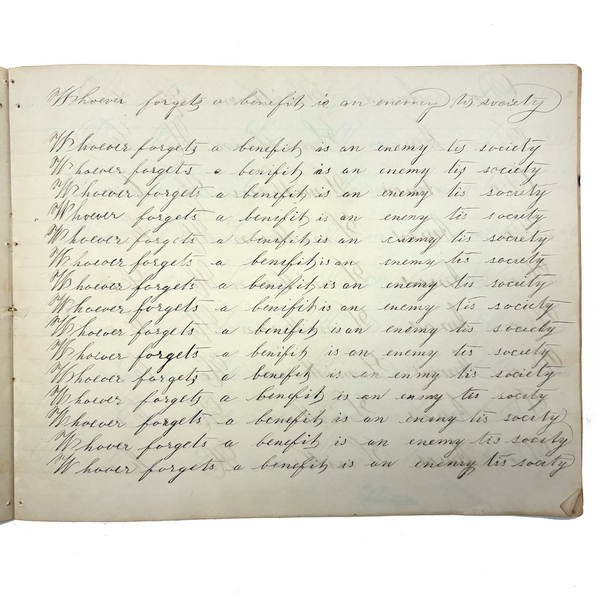 Whoever forgets a benefit, is an enemy to society
Whoever forgets a benefit, is an enemy tis society
Whoever forgets a benefit, is an enemy tis society
Whoever forgets a benefit, is an enemy tis society
Whoever forgets a benefit, is an enemy tis society
Whoever forgets a benefit, is an enemy tis society
Whoever forgets a benefit, is an enemy tis society
Whoever forgets a benefit, is an enemy tis society
Whoever forgets a benefit, is an enemy tis society
Whoever forgets a benefit, is an enemy tis society
Whoever forgets a benifit, is an enemy tis society
Whoever forgets a benefit, is an enmy tis society
Whoever forgets a benefit, is an enmy tis society
Whoever forgets a benefit, is an enemy tis society
Whover forgets a benefit, is an enemy tis society
Whover forgets a benefit, is an enemy tis society